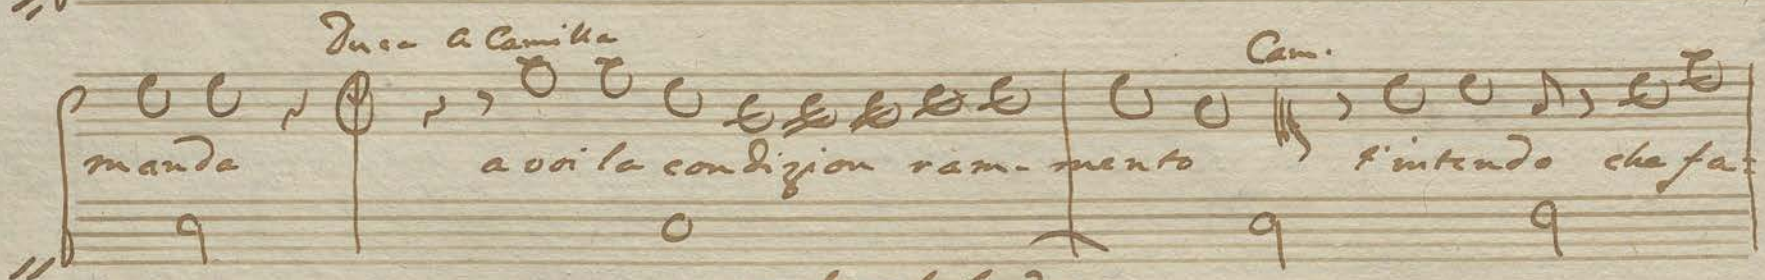 Duca a Camilla Cam.
manda a voi la condizion ram-mento t'intendo che fa-